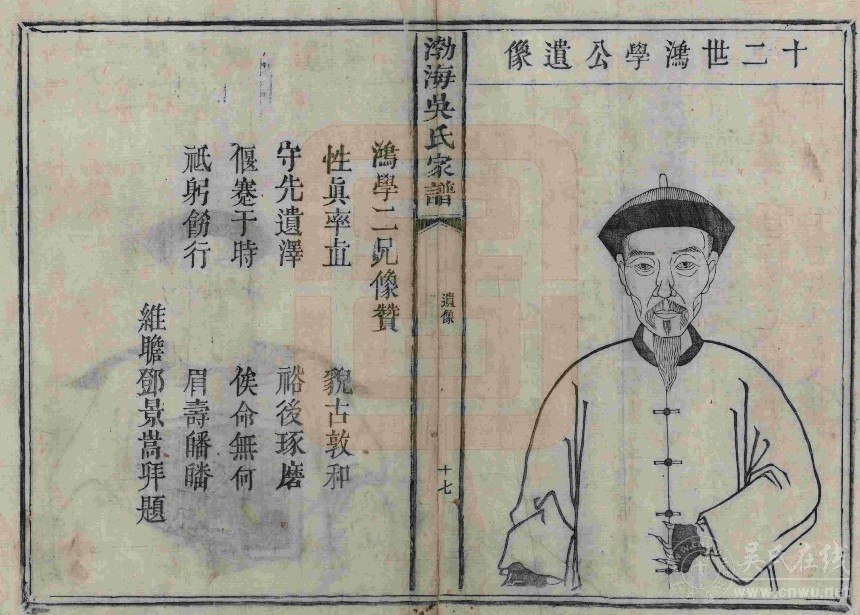 十二世鴻學公遺像
渤海吳氏家譜
遺像
十七
鴻學二兄像贊
性眞率直 貌古敦和
守先遺澤 裕後琢磨
偃蹇于時 俟命無何
祗躬飭行 眉壽皤皤
維瞻鄧景嵩拜題
吴氏在线
www.cnwu.net